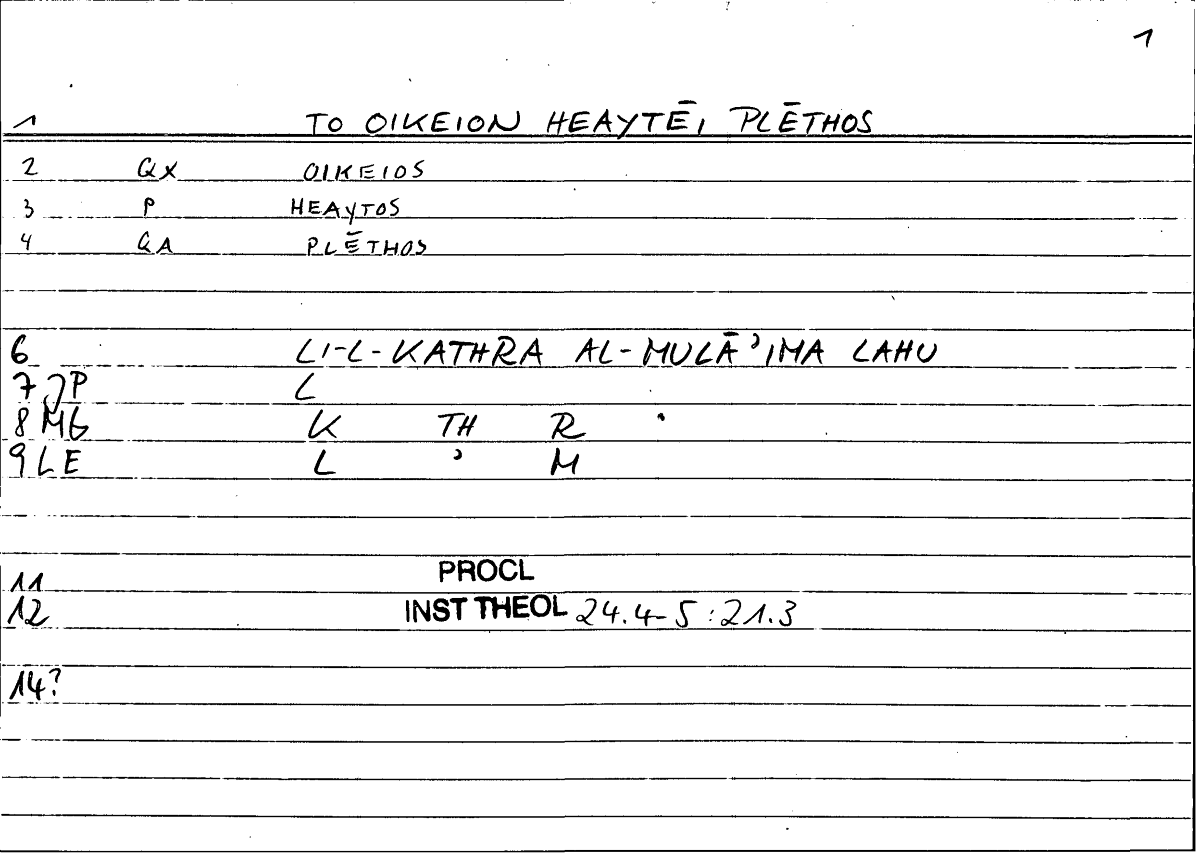 1
1 TO OIKEION HEAYTĒI PLĒTHOS
2 QX OIKEIOS
3 P HEAYTOS
4 QA PLĒTHOS
6 LI-L-KATHRA AL-MULĀʾIMA LAHU
7 JP L
8 MG K TH R
9 LE L ʾ M
11 PROCL
12 INST THEOL 24.4-5:21.3
14?